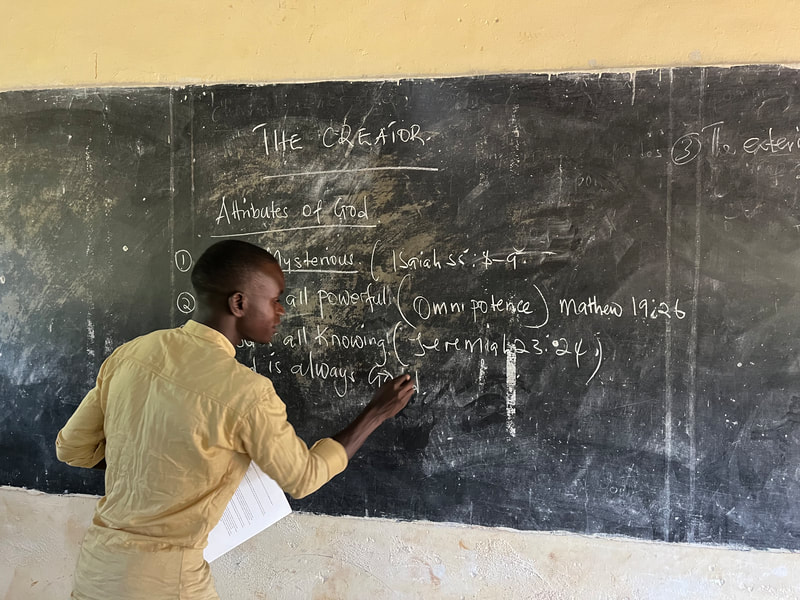 THE CREATOR.
Attributes of God
① Mysterious (Isaiah 55:8-9.
② all powerful (Omnipotence) Mathew 19:26
all Knowing (Jeremiah 23:24.)
is always
③ The